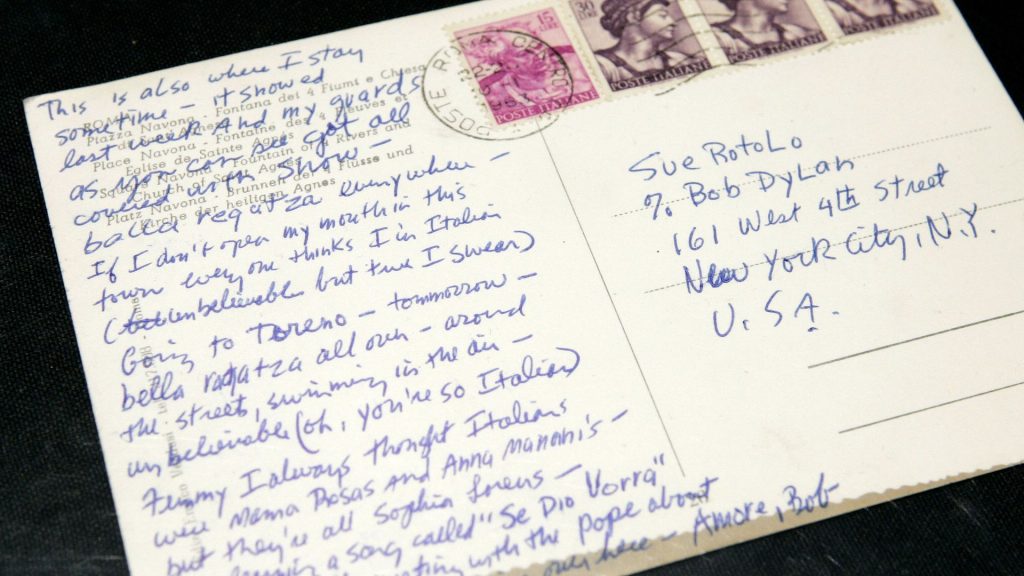 This is also where I stay
sometime - it snowed
last week And my guards
as you can see got all
covered with snow -
balla regatza everywhere -
If I don't open my mouth in this
town everyone thinks I'm Italian
(unbelievable but true I swear)
Going to Toreno - tommorrow -
bella ragatza all over - around
the street, swimming in the air -
unbelievable (oh, you're so Italian)
Funny I always thought Italians
were Mama Rosas and Anna Mananni's -
but they're all Sophia Lorens -
a song called "Se Dio Vorra"
with the pope about
over here - Amore, Bob
ROMA
Piazza Navona - Fontana dei 4 Fiumi e Chiesa
Place Navona - Fontaine des 4 Fleuves et
Eglise de Sainte Agnès
Square Navona - Fountain of 4 Rivers and
Church of Saint Agnes
Platz Navona - Brunnen der 4 Flüsse und
Kirche der heiligen Agnes
15
POSTE ITALIANE
30
POSTE ITALIANE
POSTE ITALIANE
POSTE ITALIANE
POSTE ROMA CENTRO
Sue Rotolo
%. Bob Dylan
161 West 4th Street
New York City, N.Y.
U.S.A.